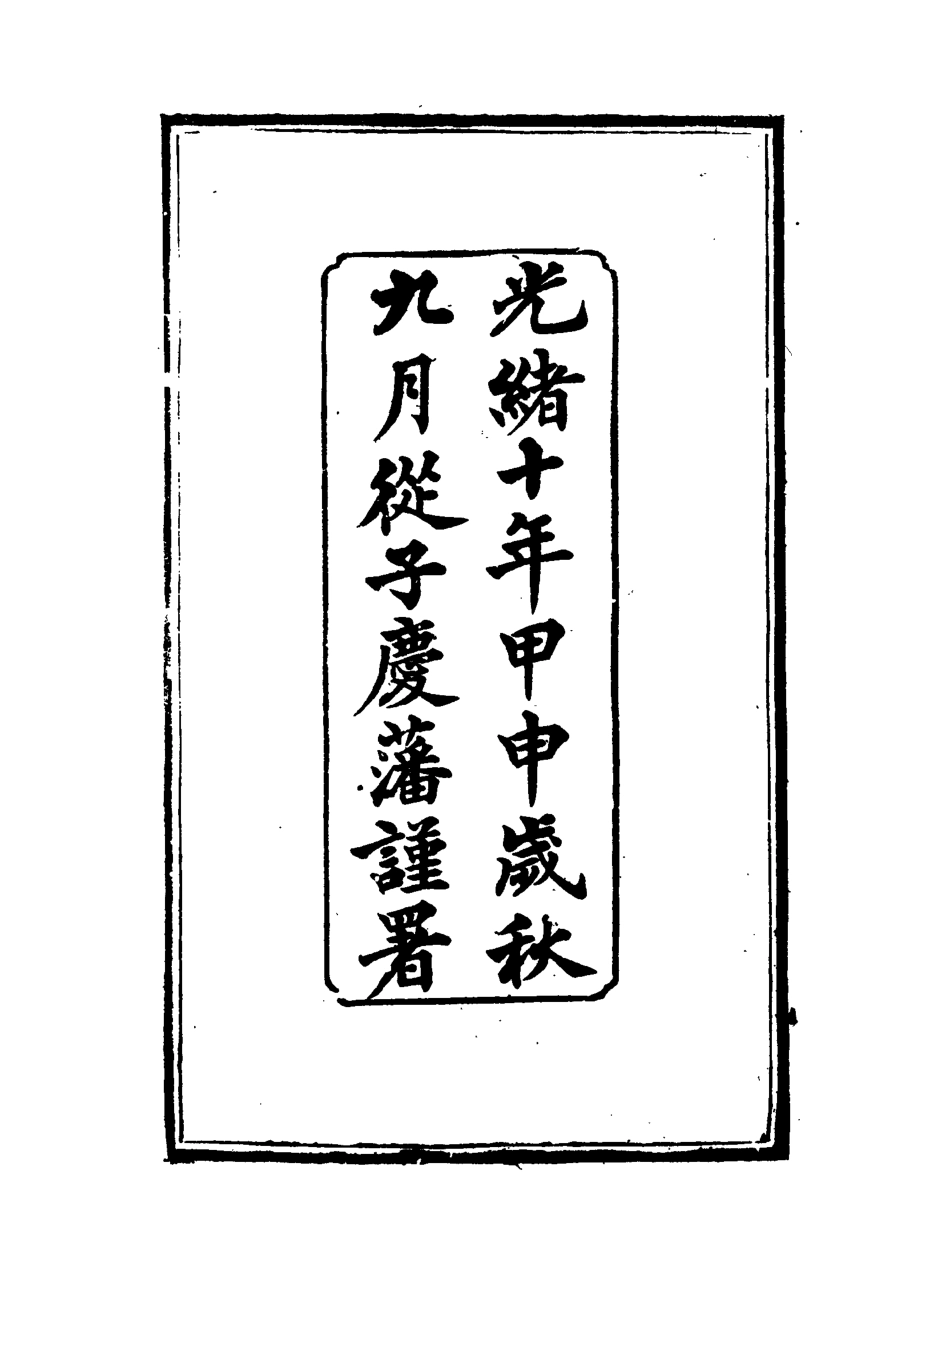 光緒十年甲申歲秋
九月從子慶藩謹署